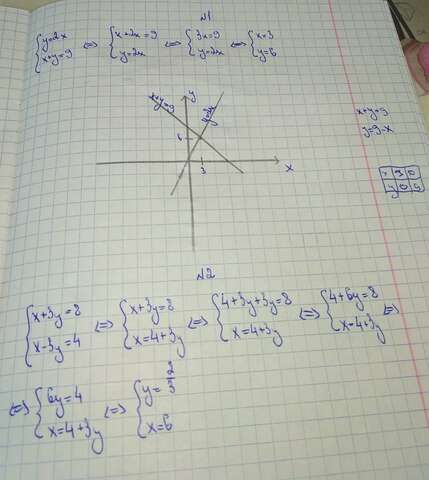 №1
{y=2x x+y=9 <=> {x+2x=9 y=2x <=> {3x=9 y=2x <=> {x=3 y=6
y
x+y=9 y=2x
6
3 x
x+y=9
y=9-x
x 9 0
y 0 9
№2
{x+3y=8 x-3y=4 <=> {x+3y=8 x=4+3y <=> {4+3y+3y=8 x=4+3y <=> {4+6y=8 x=4+3y <=>
<=> {6y=4 x=4+3y <=> {y=2/3 x=6